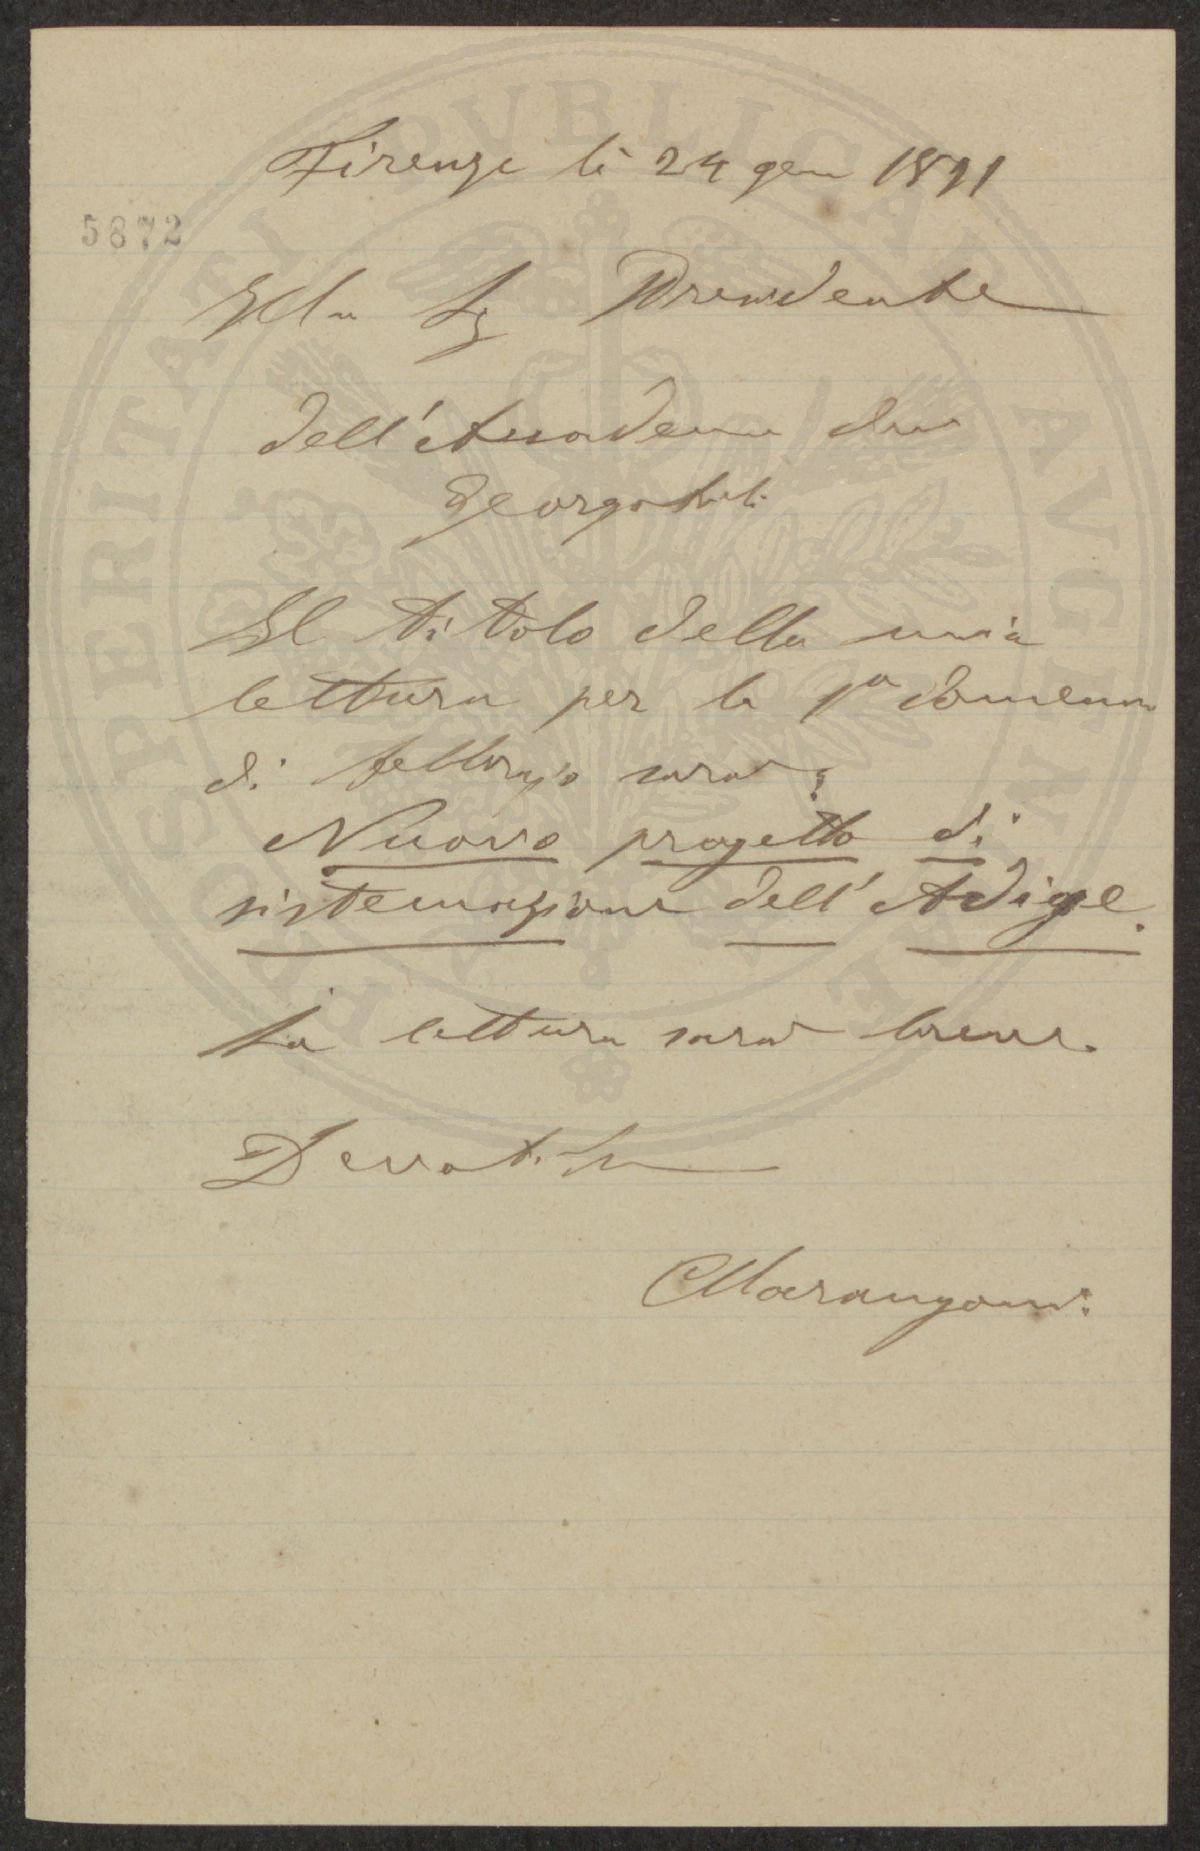 Firenze lì 24 gen 1891
5872
Illu Sig Presidente
dell'Accademia dei
Georgofili
Il titolo della mia
lettura per la 1a domenica
di febbrajo sarà:
Nuovo progetto di
sistemazione dell'Adige.
La lettura sarà breve.
Devotissimo
CMarangoni.
PROSPERITATI PVBLICAE AVGENDAE